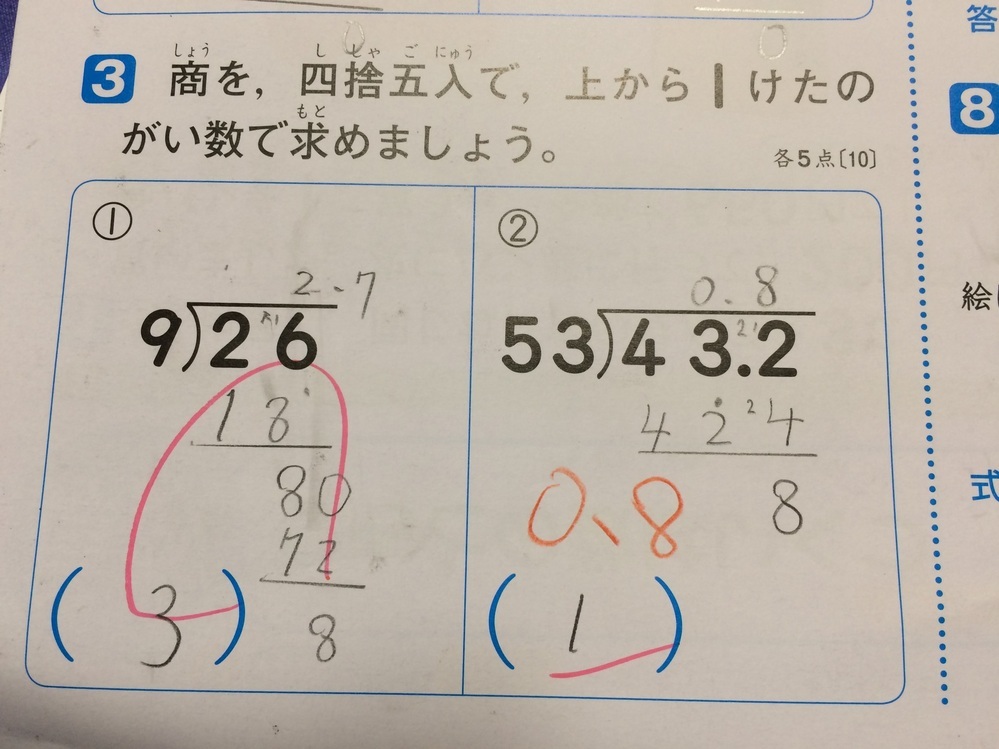 3 商を，四捨五入で，上から1けたの
しょう し しゃ ご にゅう
がい数で求めましょう。
もと
各5点〔10〕
①
2.7
9)26
18
80
72
8
(3)
②
0.8
53)43.2
424
8
0、8
(1)
答
8
絵
式